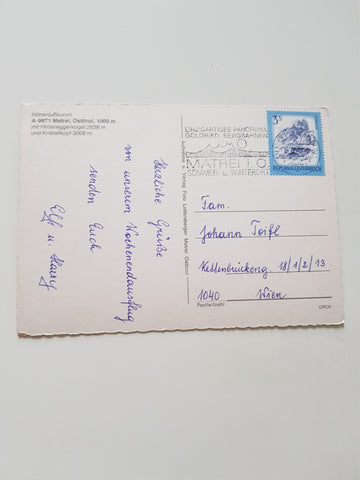 Höhenluftkurort
A-9971 Matrei, Osttirol, 1000 m
mit Hintereggerkogel 2638 m
und Kristallkopf 3008 m
Herzliche Grüße
von unserem Wochenendausflug
senden Euch
Elfi u.
Aufnahme u. Verlag Foto Lottersberger Matrei Osttirol
EINZIGARTIGES PANORAMA
GOLDRIED BERGBAHNEN
MATREI I. O.
SOMMER- u. WINTERSPORT
3 S
REPUBLIK ÖSTERREICH
Fam.
Johann Teifl
Kettenbrückeng 18/1/2/13
1040 Wien
Postleitzahl